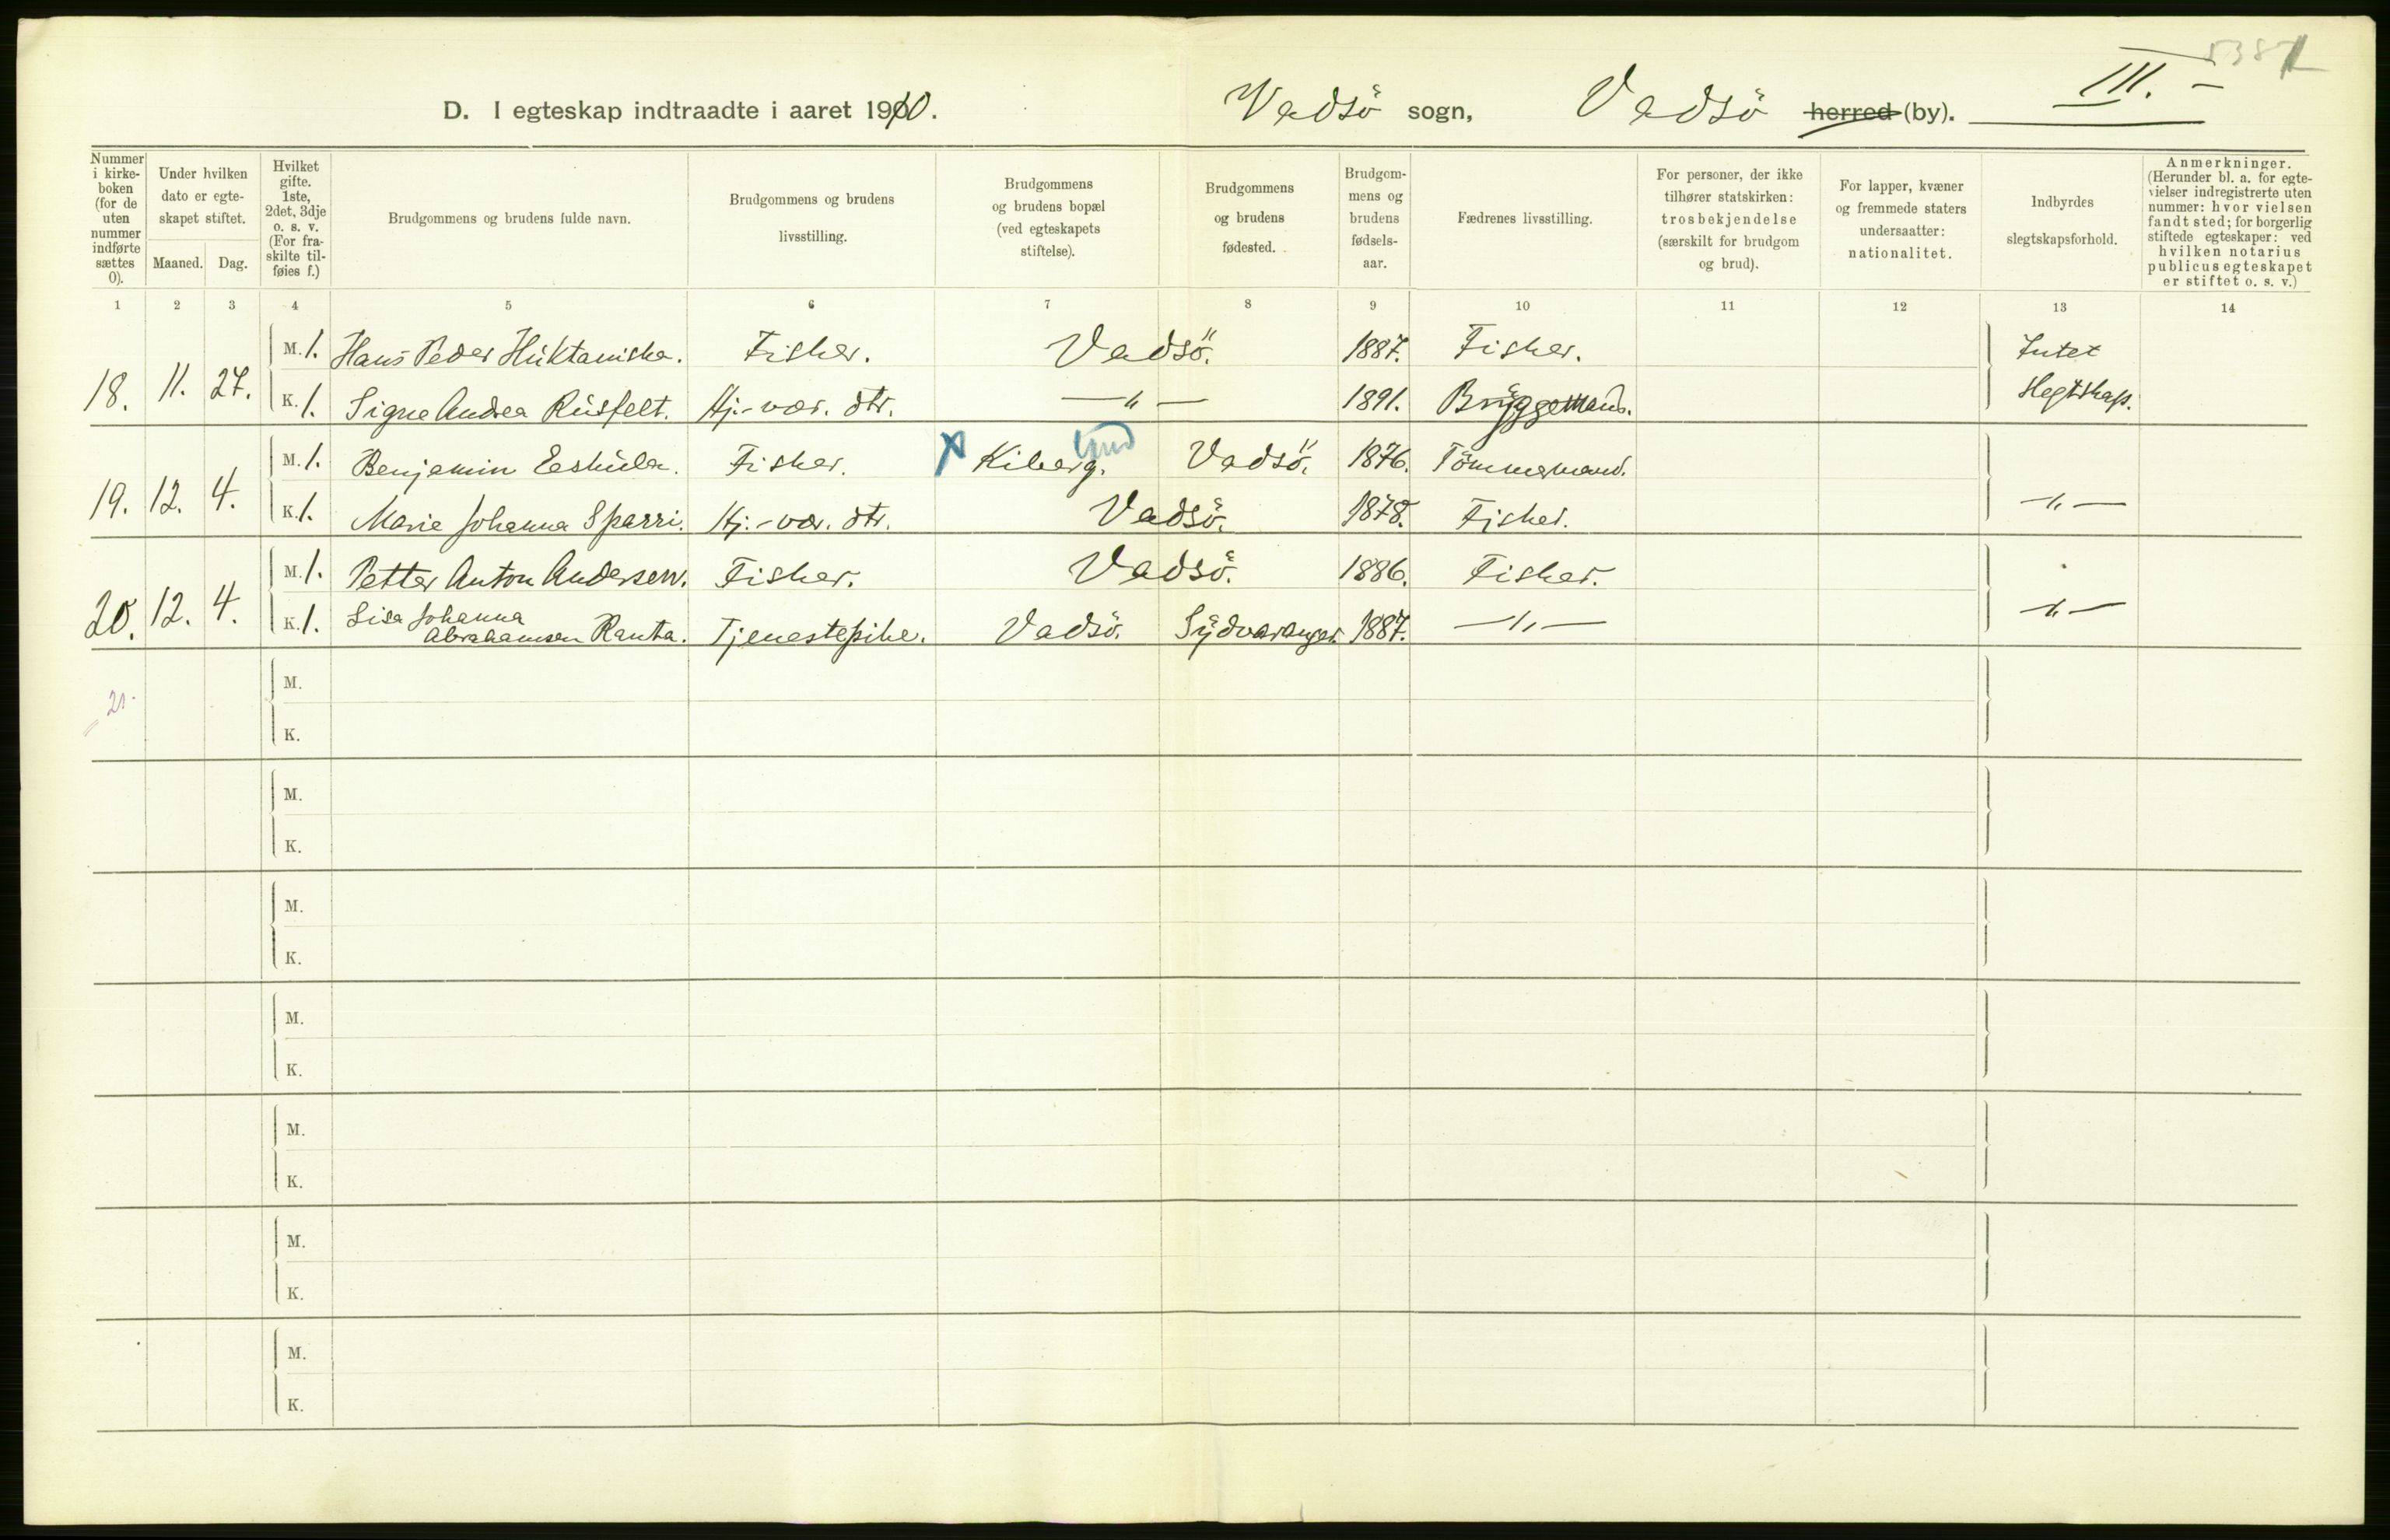 5387
D. I egteskap indtraadte i aaret 1910. Vadsö sogn, Vadsö herred (by). III. –
Nummer i kirkeboken (for de uten nummer indførte sættes 0).
Under hvilken dato er egteskapet stiftet.
Maaned. Dag.
Hvilket gifte. 1ste, 2det, 3dje o. s. v. (For fraskilte tilføies f.)
Brudgommens og brudens fulde navn.
Brudgommens og brudens livsstilling.
Brudgommens og brudens bopæl (ved egteskapets stiftelse).
Brudgommens og brudens fødested.
Brudgommens og brudens fødselsaar.
Fædrenes livsstilling.
For personer, der ikke tilhører statskirken: trosbekjendelse (særskilt for brudgom og brud).
For lapper, kvæner og fremmede staters undersaatter: nationalitet.
Indbyrdes slegtskapsforhold.
Anmerkninger. (Herunder bl. a. for egtevielser indregistrerte uten nummer: hvor vielsen fandt sted; for borgerlig stiftede egteskaper: ved hvilken notarius publicus egteskapet er stiftet o. s. v.)
1 2 3 4 5 6 7 8 9 10 11 12 13 14
M. 1. Hans Peder Huktaniska. Fisker. Vadsö. 1887. Fisker. Intet
18. 11. 27. K. 1. Signe Andrea Rusfelt. Hj.-vær. dtr. —"— 1891. Bryggemand. slegtskap.
M. 1. Benjamin Eeskula. Fisker. X Kiberg. Vadsö. 1876. Tömmermand.
19. 12. 4. K. 1. Marie Johanna Sparri. Hj.-vær. dtr. Vadsö. 1878. Fisker. —"—
M. 1. Petter Anton Andersen. Fisker. Vadsö. 1886. Fisker.
20. 12. 4. K. 1. Lisa Johanna
Abrahamsen Ranta. Tjenestepike. Vadsö. Sydvaranger. 1887. —"— —"—
21.
M.
K.
M.
K.
M.
K.
M.
K.
M.
K.
M.
K.
M.
K.